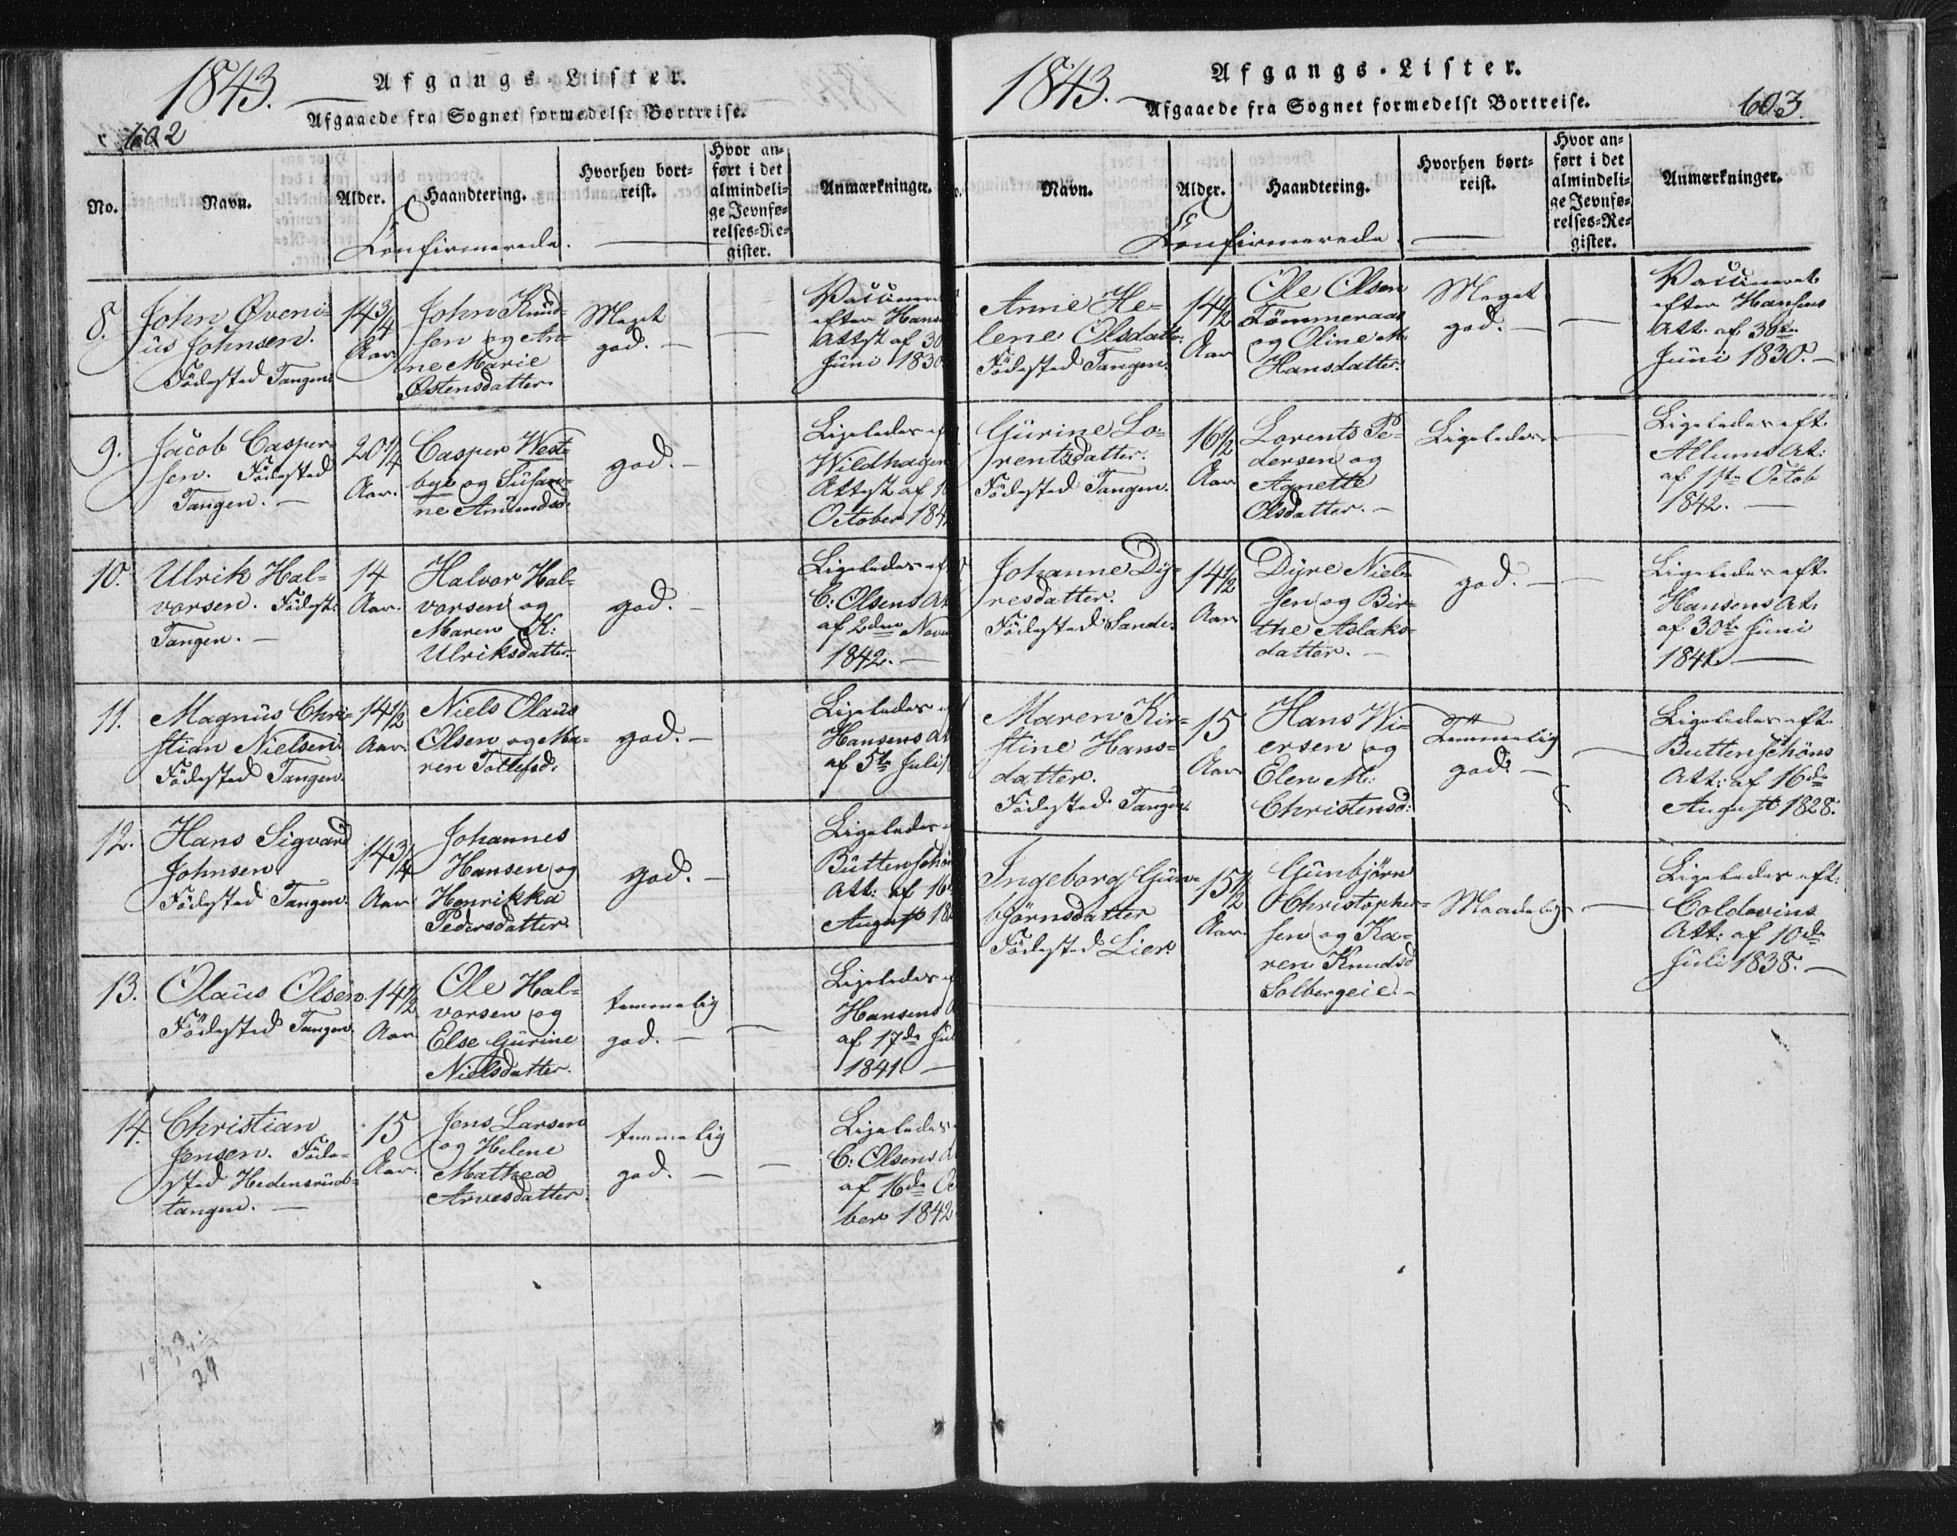 1843.
Afgangs-Lister.
Afgaaede fra Sognet formedelst Bortreise.
602
No.
Navn.
Alder.
Haandtering.
Hvorhen bort-
reist.
Hvor an-
ført i det
almindeli-
ge Jevnfø-
relses-Re-
gister.
Anmærkninger.
Confirmerede.
8.
John Øveni-
us Johnsen.
Födested Tangen.
14 3/4
Aar
John Knud-
sen og An-
ne Marie
Østensdatter.
Meget
god. —
—
Vaccineret
efter Hans
Attest af 30
Juni 1830
9.
Jacob Casper-
sen. Födested
Tangen. —
20 1/4
Aar.
Casper West-
bye og Susan-
ne Amundsd.
god. —
Ligeledes ef
Wildhagen
Attest af 1
October 184
10.
Ulrik Hal-
vorsen. Födest.
Tangen. —
14
Aar.
Halvor Hal-
vorsen og
Maren K:
Ulriksdatter.
god. —
Ligeledes ef
C: Olsens At
af 2den Nov
1842. —
11.
Magnus Chri-
stian Nielsen.
Födested Tangen.
14 1/2
Aar.
Niels Olaus
Olsen og Ma-
ren Tollefsd:
god. —
Ligeledes
Hansens At
af 5te Juli
12.
Hans Sigvard
Johnsen
Födested Tangen.
14 3/4
Aar
Johannes
Hansen og
Henrikka
Pedersdatter.
god. —
Ligeledes
Büttenschön
Att: af 16
August 18
13.
Olaus Olsen.
Födested Tangen.
14 1/2
Aar
Ole Hal-
vorsen og
Else Gurine
Nielsdatter.
temmelig
god. —
—
Ligeledes
Hansens A
af 17de Jul
1841. —
14.
Christian
Jensen. Föde-
sted Hedensrud-
tangen. —
15
Aar.
Jens Larsen
og Helene
Mathea
Arvesdatter.
temmelig
god. —
—
Ligeledes
C: Olsens A
af 16de O
ber 1842
24
1843.
Afgangs-Lister.
Afgaaede fra Sognet formedelst Bortreise.
603.
Navn.
Alder.
Haandtering.
Hvorhen bort-
reist.
Hvor an-
ført i det
almindeli-
ge Jevnfø-
relses-Re-
gister.
Anmærkninger.
Confirmerede.
Anne He-
lene Olsdatter.
Födested Tangen.
14 1/2
Aar
Ole Olsen
Tömmeraas
og Oline M.
Hansdatter.
Meget
god. —
—
Vaccineret
efter Hansens
Att: af 30te
Juni 1830. —
Gurine Lo-
rentsdatter.
Födested Tangen.
16 1/2
Aar
Lorents Pe-
dersen og
Agnette
Olsdatter. —
Ligeledes.
—
Ligeledes eft.
Allums At:
af 1ste Octob
1842. —
Johanne Dy-
resdatter.
Födested Sande.
14 1/2
Aar
Dyre Niel-
sen og Bir-
the Aslaks-
datter. —
god. —
—
Ligeledes eft.
Hansens At:
af 30te Juni
1841. —
Maren Kir-
stine Hans-
datter.
Födested Tangen.
15
Aar
Hans Wi-
ersen og
Elen M:
Christensd:
Temmelig
god. —
—
Ligeledes eft.
Buttenschöns
Att: af 16de
August 1828.
Ingeborg Gun-
björnsdatter
Födested Lier.
15 1/2
Aar
Gunbjörn
Christopher-
sen og Ka-
ren Knudsd
Solbergeie. —
Maadelig.
—
Ligeledes eft.
Coldevins
Att: af 10de
Juli 1838. —